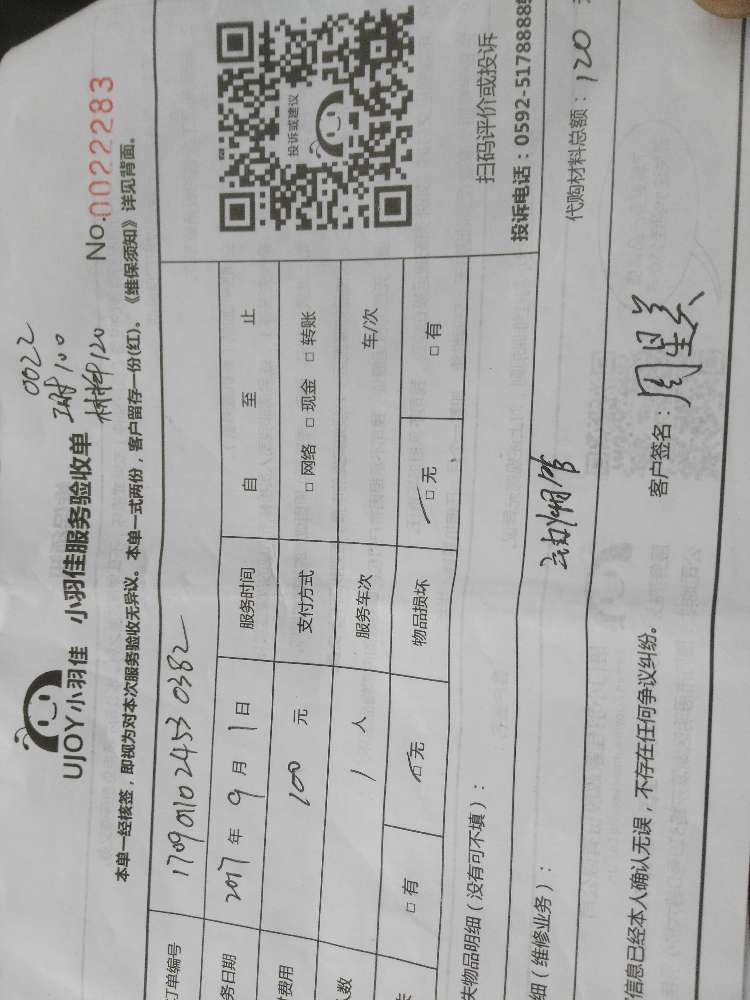 UJOY小羽佳 小羽佳服务验收单
0022
工时100
材料120
No.0022283
本单一经核签，即视为对本次服务验收无异议。本单一式两份，客户留存一份(红)。《维保须知》详见背面。
订单编号 1709011024530382
务日期 2017年9月1日 服务时间 自 至 止
费用 100 元 支付方式 □网络 □现金 □转账
人数 1 人 服务车次 车/次
□有 □无 物品损坏 □无 □有
投诉或建议
扫码评价或投诉
投诉电话：0592-5178888
失物品明细（没有可不填）：
细（维修业务）：
代购材料总额：120
信息已经本人确认无误，不存在任何争议纠纷。
客户签名：周星关